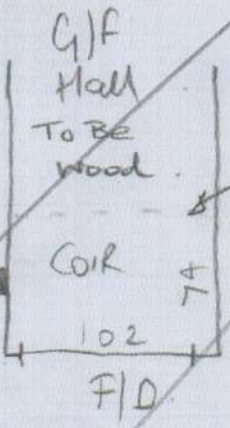 G/F
Hall
To Be
Wood.
COIR
74
102
F/D